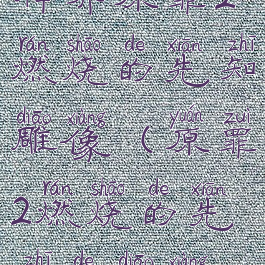 rán shāo de xiān zhī
燃烧的先知
diāo xiàng yuán zuì
雕像(原罪
rán shāo de xiān
2燃烧的先
zhī de diāo xiàng